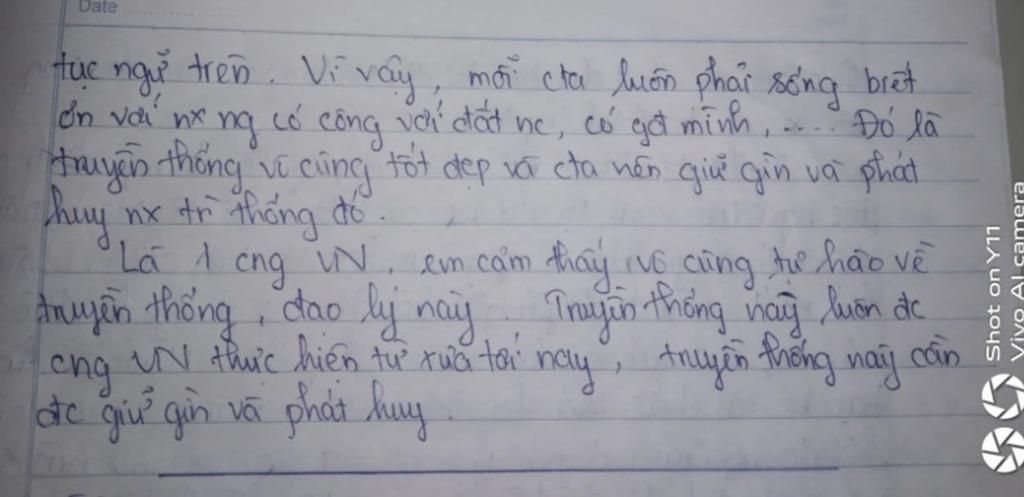 Date
tục ngữ trên. Vì vậy, mỗi cta luôn phải sống biết
ơn với nx ng có công với đất nc, có gđ mình, .... Đó là
truyền thống vô cùng tốt đẹp và cta nên giữ gìn và phát
huy nx tr thống đó.
Là 1 cng VN, em cảm thấy vô cùng tự hào về
truyền thống, đạo lý này. Truyền thống này luôn đc
cng VN thực hiện từ xưa tới nay, truyền thống này cần
đc giữ gìn và phát huy.
Shot on Y11
Vivo AI camera